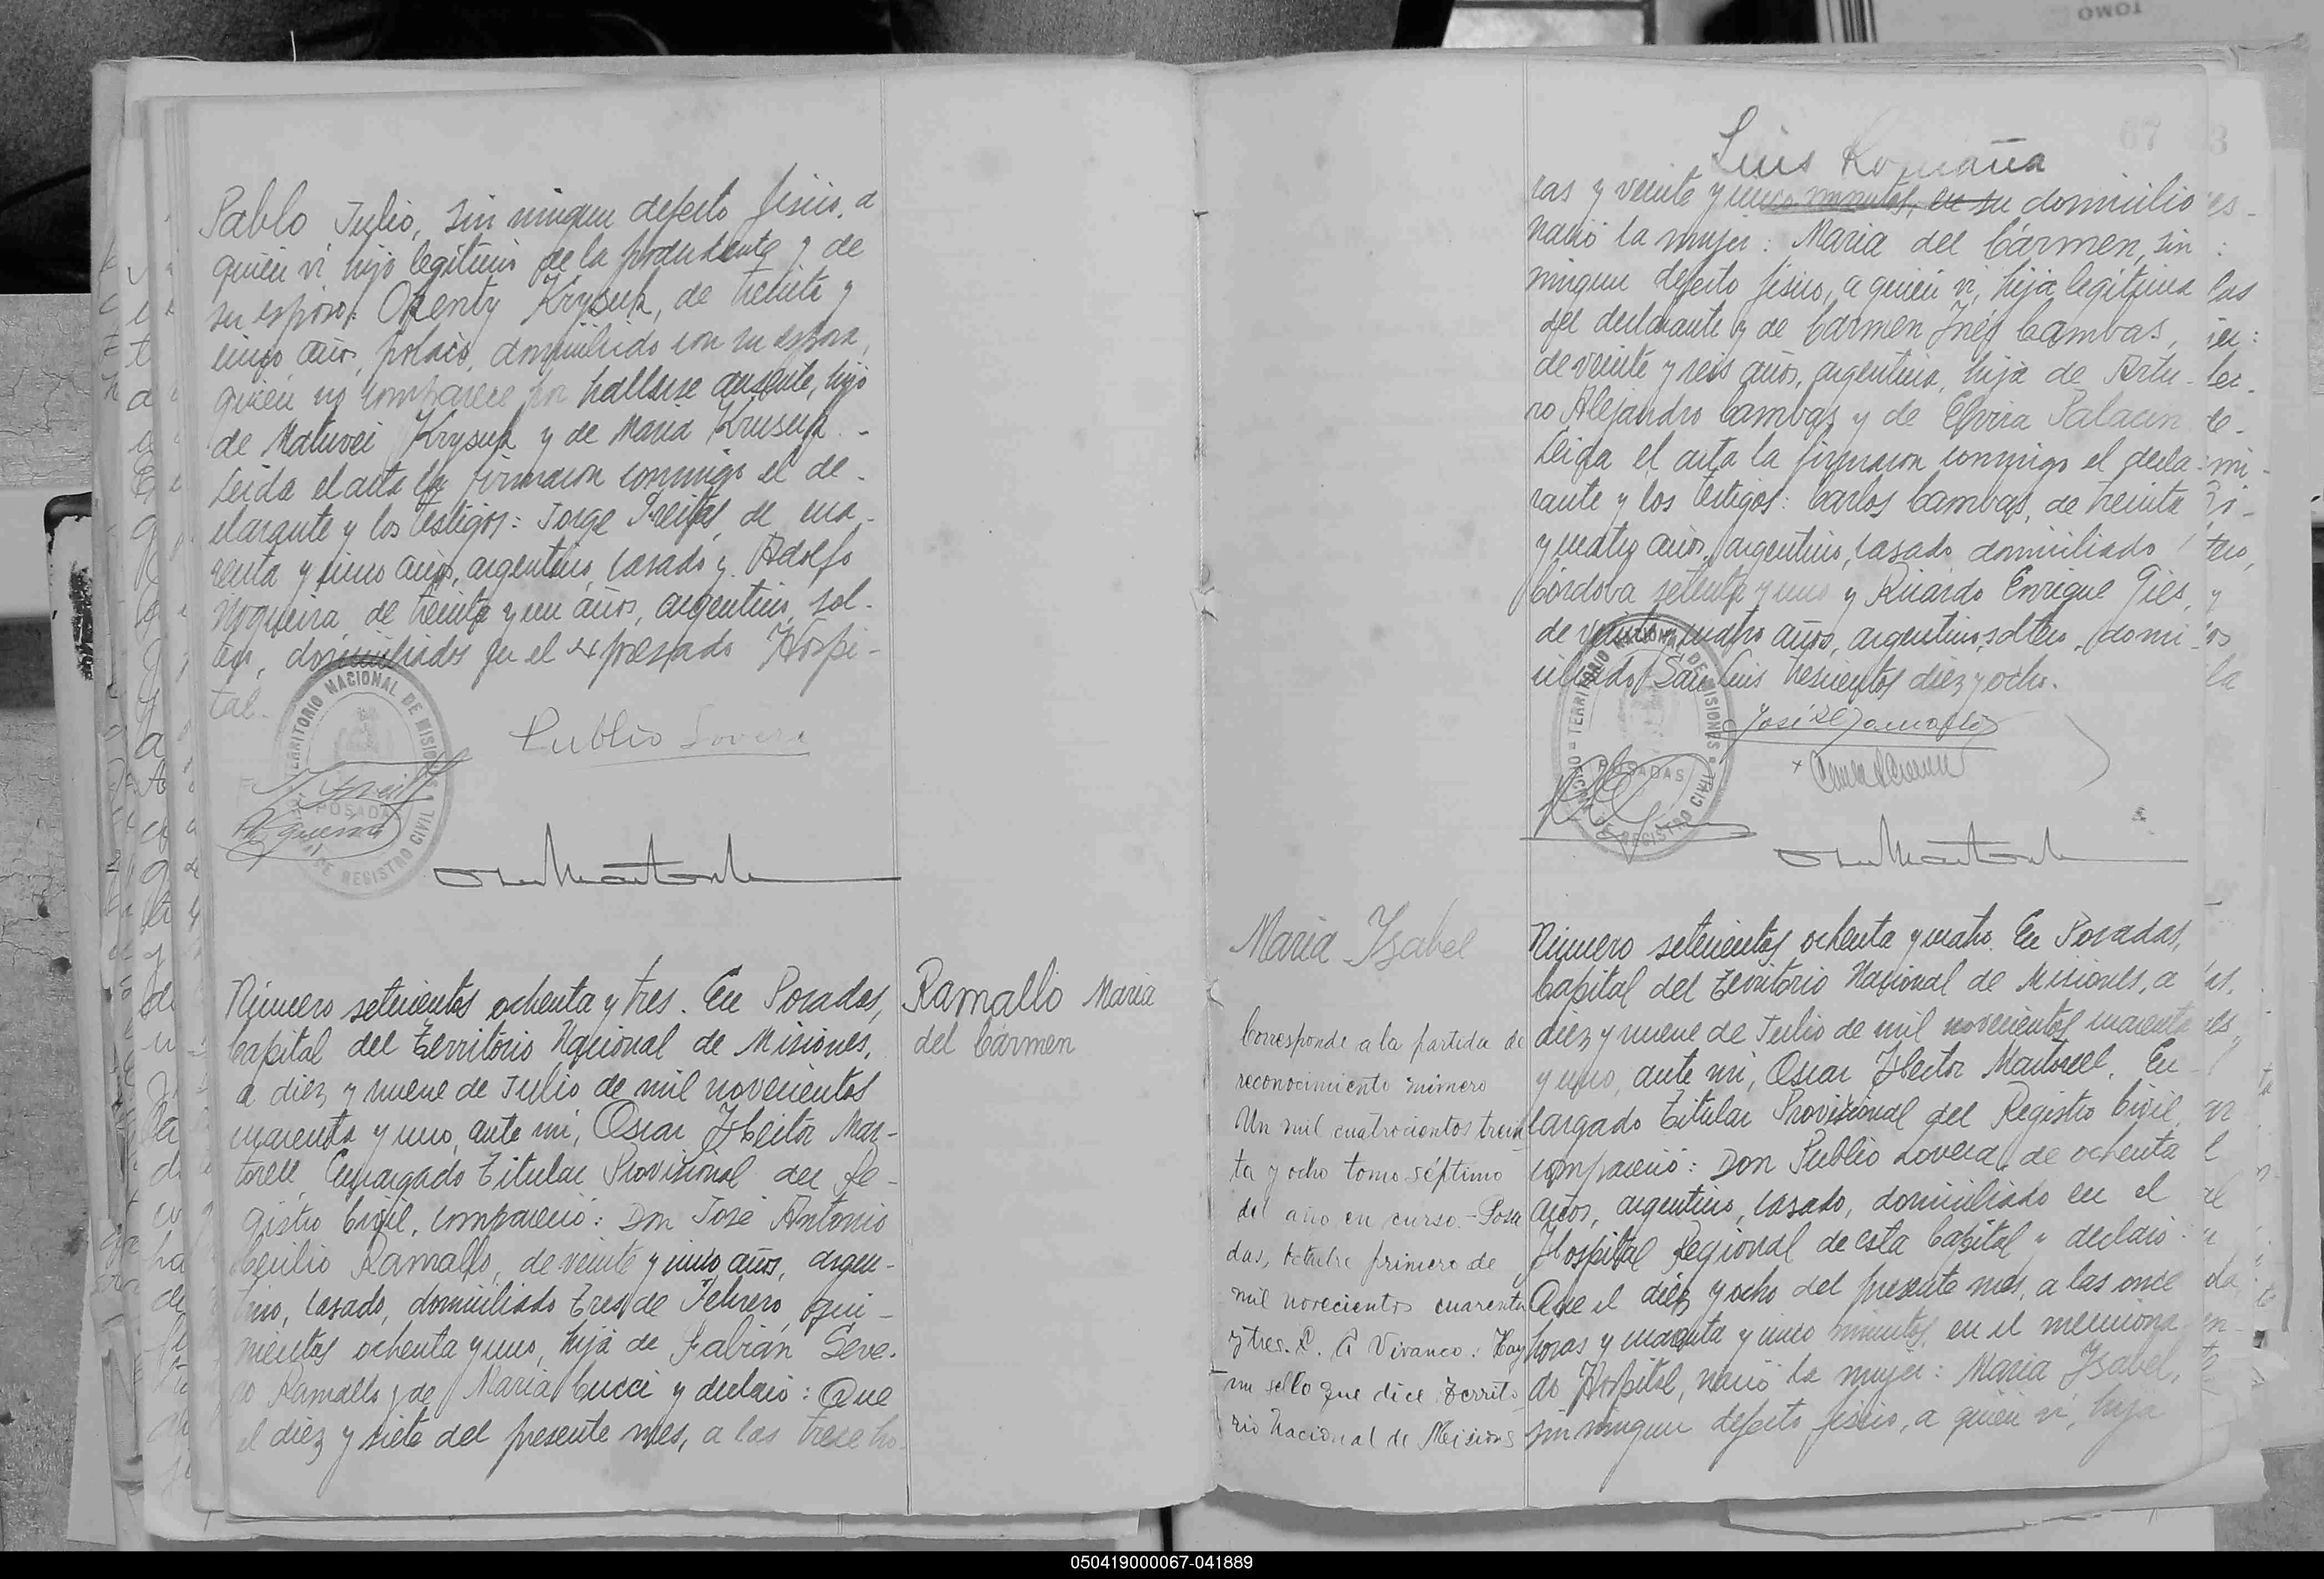 Pablo Julio, sin ningun defecto fisico, a
quien vi hijo legitimo de la procedente y de
su esposo: Krysuk, de treinta y
cinco años, polaco, domiciliado con su esposa,
quien no comparece por hallarse ausente, hijo
de Matuvei Krysuk y de Maria Krusuk.-
Leida el acta la firmaron conmigo el de-
clarante y los testigos: Jorge Freitas, de cua-
renta y cinco años, argentino, casado y Adolfo
Nogueira, de treinta y un años, argentino, sol-
tero, domiciliados en el expresado Hospi-
tal.-
TERRITORIO NACIONAL DE MISIONES
POSADAS
REGISTRO CIVIL
Publio Lovera
Número setecientos ochenta y tres. En Posadas,
Capital del Territorio Nacional de Misiones,
a diez y nueve de Julio de mil novecientos
cuarenta y uno, ante mi, Oscar Hector Mar-
torell, Encargado Titular Provisional del Re-
gistro Civil, compareció: Don José Antonio
Cecilio Ramallo, de veinte y cinco años, argen-
tino, casado, domiciliado Tres de Febrero, qui-
nientos ochenta y uno, hijo de Fabián Seve-
ro Ramallo y de Maria Cucci y declaró: Que
el diez y siete del presente mes, a las trece ho-
Ramallo Maria
del Cármen
67
Luis Romaña
ras y veinte y cinco minutos, en su domicilio
nació la mujer: Maria del Cármen, sin
ningun defecto fisico, a quien vi, hija legitima
del declarante y de Carmen Inés Cambas,
de veinte y seis años, argentina, hija de Artu-
ro Alejandro Cambas y de Elvira Palacin
Leida el acta la firmaron conmigo el decla-
rante y los testigos: Carlos Cambas, de treinta
y cuatro años, argentino, casado domiciliado
Córdoba setenta y uno y Ricardo Enrique Gies,
de veinte y cuatro años, argentino, soltero, domi-
ciliado San Luis trescientos diez y ocho.
TERRITORIO NACIONAL DE MISIONES
POSADAS
REGISTRO CIVIL
Maria Ysabel
Corresponde a la partida de
reconocimiento número
Un mil cuatrocientos trein
ta y ocho tomo séptimo
del año en curso.- Posa
das, octubre primero de
mil novecientos cuarenta
y tres. R. A Vivanco: Hay
un sello que dice Territo
rio Nacional de Misiones
Número setecientos ochenta y cuatro. En Posadas,
Capital del Territorio Nacional de Misiones, a
diez y nueve de Julio de mil novecientos cuarenta
y uno, ante mi, Oscar Hector Martorell, En-
cargado Titular Provisional del Registro Civil,
compareció: Don Publio Lovera, de ochenta
años, argentino, casado, domiciliado en el
Hospital Regional de esta Capital y declaró:
Que el diez y ocho del presente mes, a las once
horas y cuarenta y cinco minutos, en el menciona-
do Hospital, nació la mujer: Maria Ysabel,
sin ningun defecto fisico, a quien vi, hija
050419000067-041889